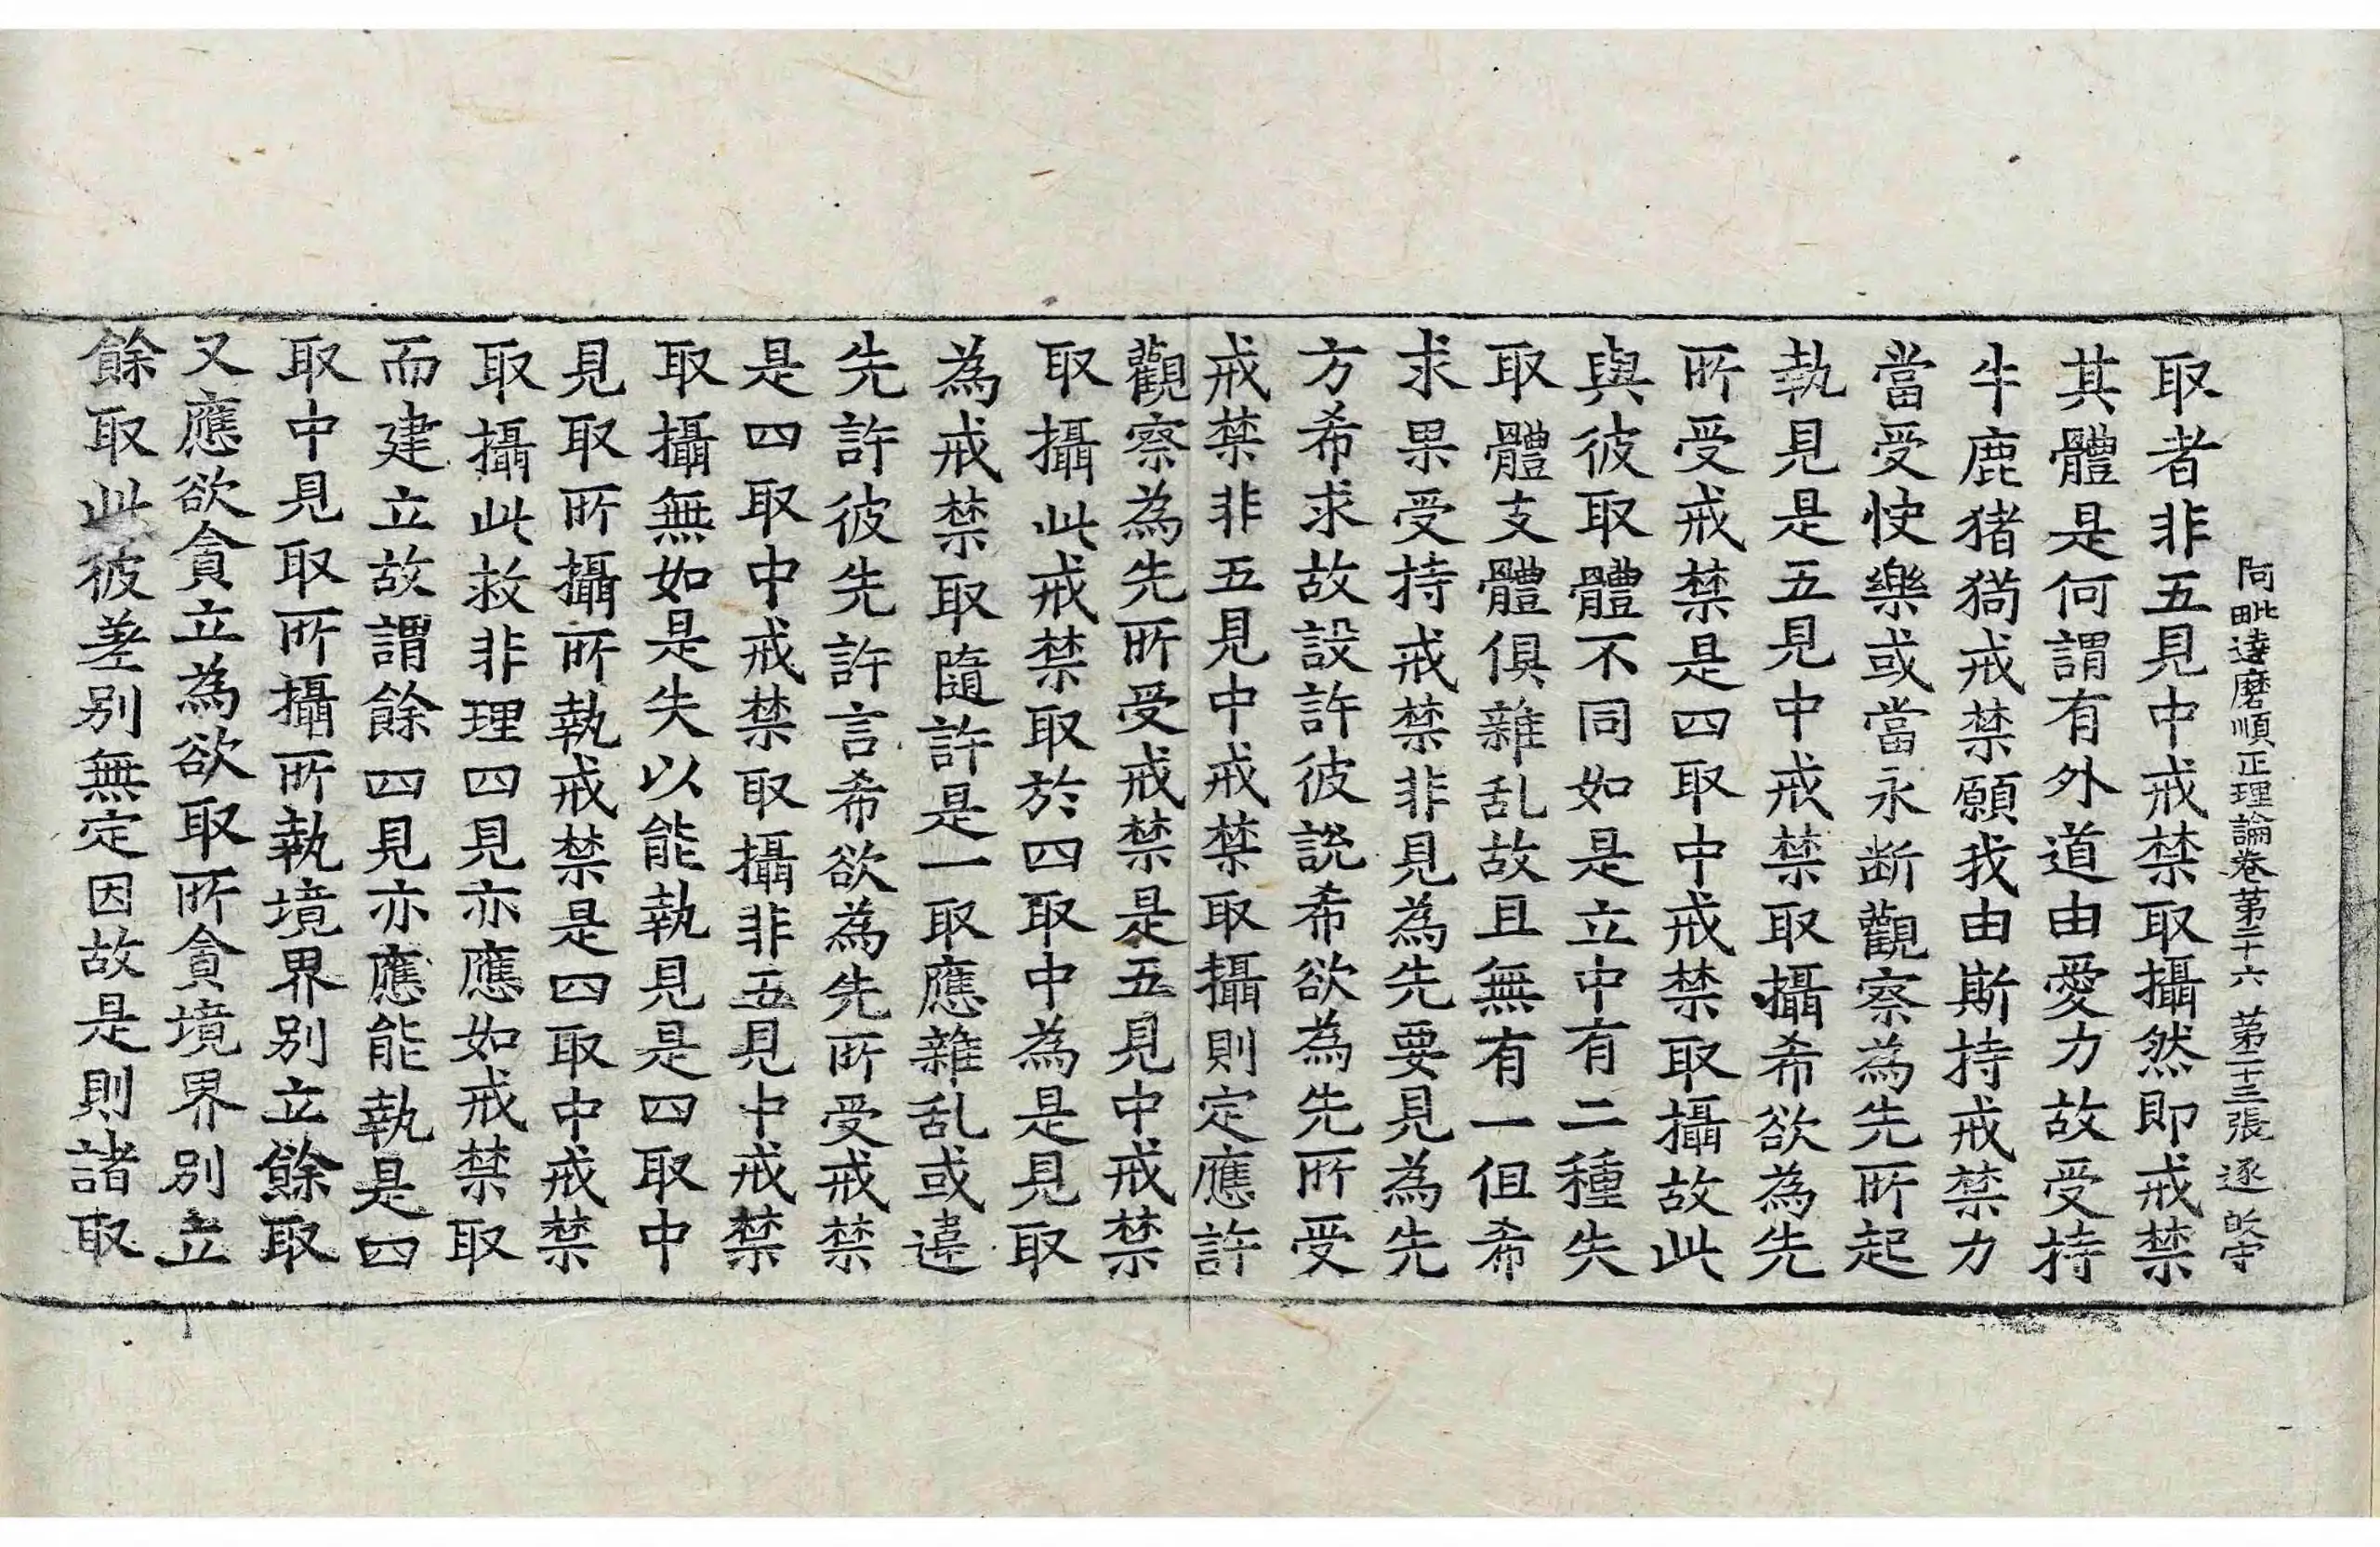 阿毗達磨順正理論卷第二十六 第二十三張 逐 守
取者非五見中戒禁取攝然即戒禁
其體是何謂有外道由愛力故受持
牛鹿猪猯戒禁願我由斯持戒禁力
當受快樂或當永断觀察為先所起
執見是五見中戒禁取攝希欲為先
所受戒禁是四取中戒禁取攝故此
與彼取體不同如是立中有二種失
取體支體俱雜乱故且無有一但希
求果受持戒禁非見為先要見為先
方希求故設許彼說希欲為先所受
戒禁非五見中戒禁取攝則定應許
觀察為先所受戒禁是五見中戒禁
取攝此戒禁取於四取中為是見取
為戒禁取隨許是一取應雜乱或違
先許彼先許言希欲為先所受戒禁
是四取中戒禁取攝非五見中戒禁
取攝無如是失以能執見是四取中
見取所攝所執戒禁是四取中戒禁
取攝此救非理四見亦應如戒禁取
而建立故謂餘四見亦應能執是四
取中見取所攝所執境界別立餘取
又應欲貪立為欲取所貪境界別立
餘取此彼差別無定因故是則諸取